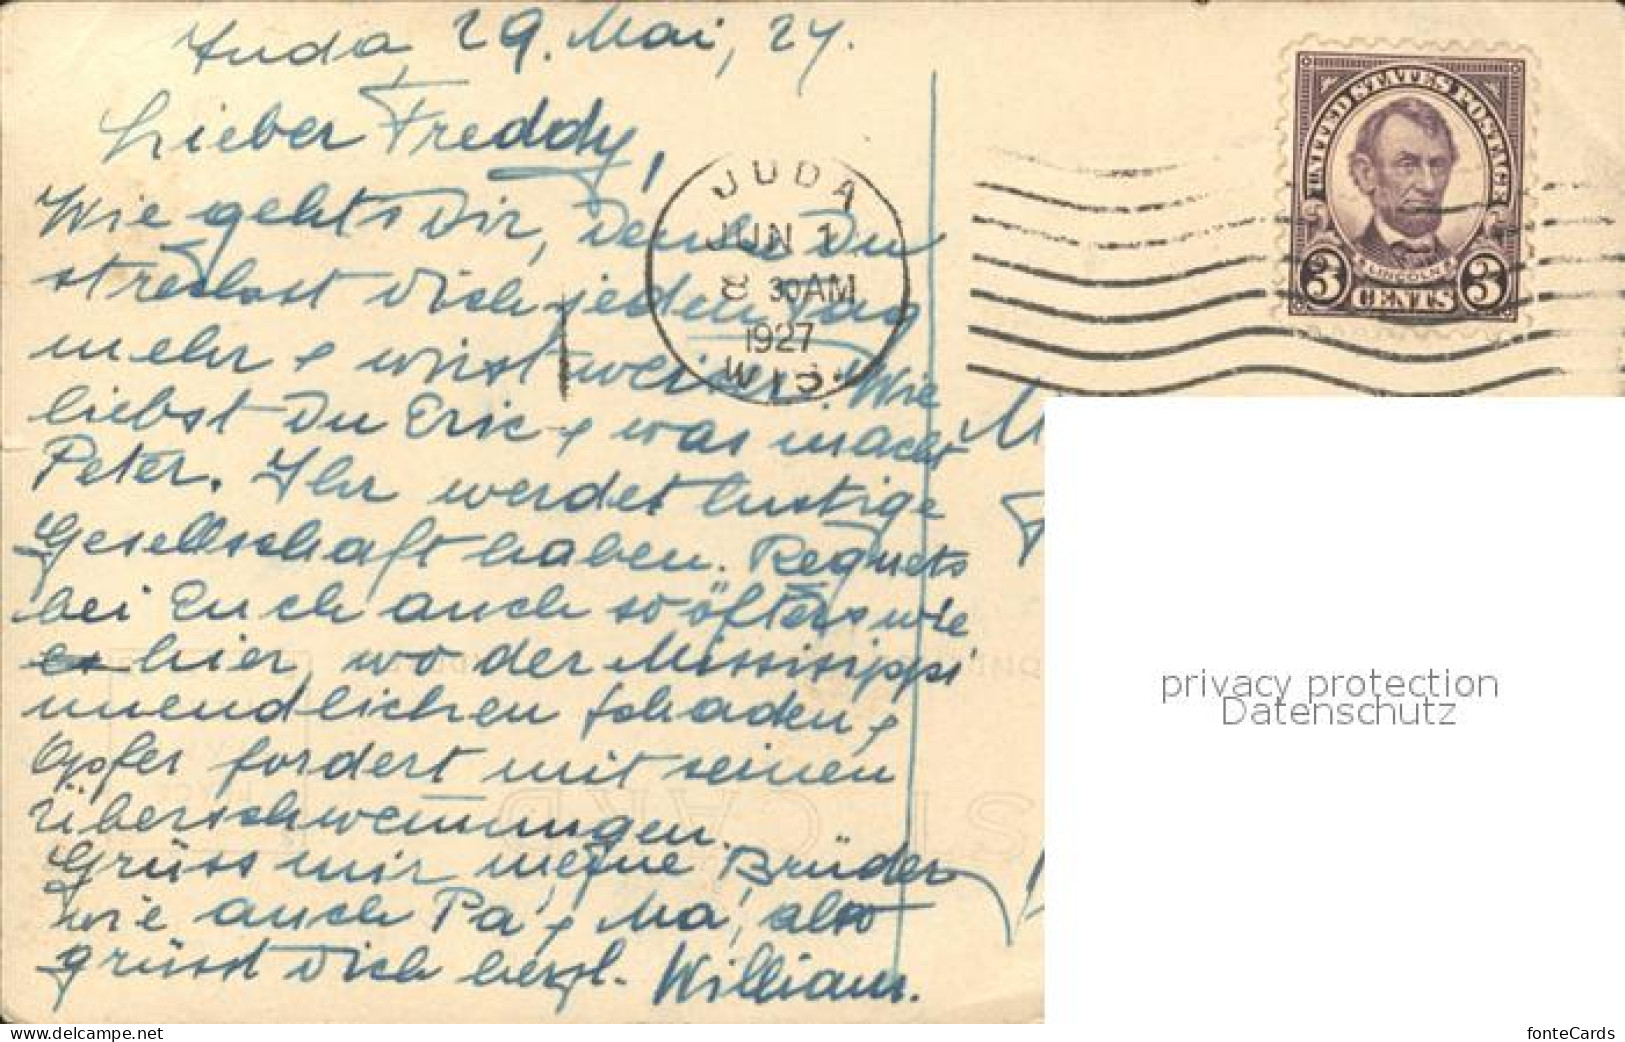 Juda, 29. Mai, 27.
Lieber Freddy,
Wie gehts Dir, Denke Du
streckst Dich jeden Tag
mehr & wirst weiser. Wie
liebst Du Eric & was macht
Peter. Ihr werdet lustige
Gesellschaft haben. Regnets
bei Euch auch so öfters wie
es hier, wo der Mississippi
unendlichen Schaden &
Opfer fordert mit seinen
Überschwemmungen.
Grüss mir meine Brüder
wie auch Pa, & Ma, also
grüsst Dich herzl. William.
JUDA
JUN 1
8 30 AM
1927
WIS.
UNITED STATES POSTAGE
LINCOLN
3 CENTS 3
privacy protection
Datenschutz
www.delcampe.net
fonteCards